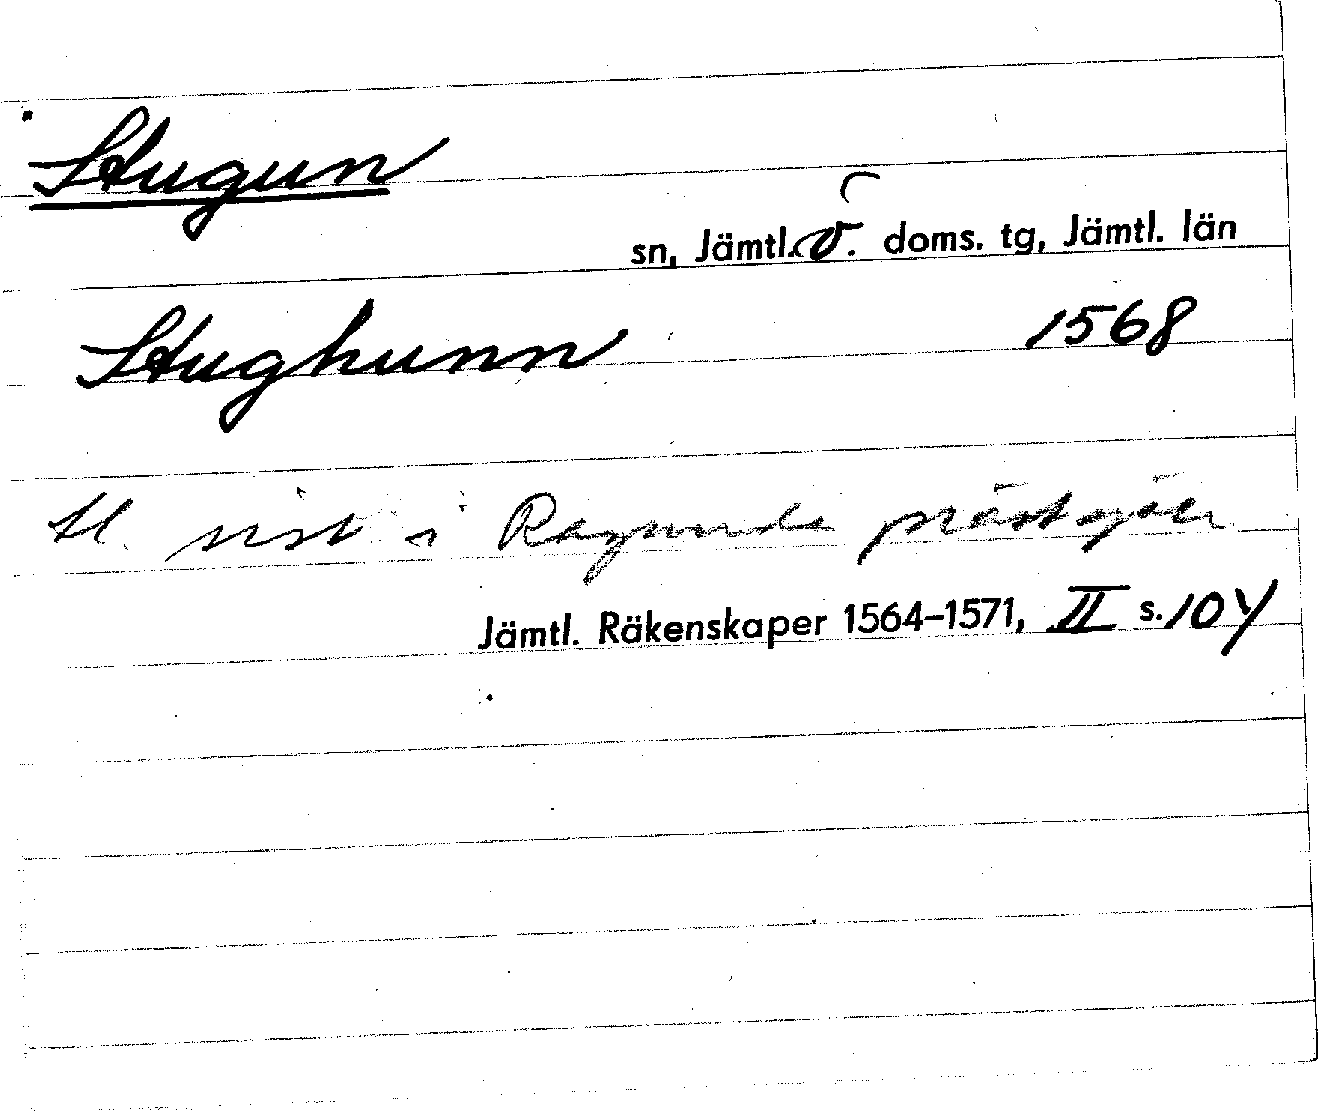 Stugun
sn, Jämtl. ö. doms. tg, Jämtl. län
Stughunn 1568
sist i Ragunda
Jämtl. Räkenskaper 1564–1571, II s. 104